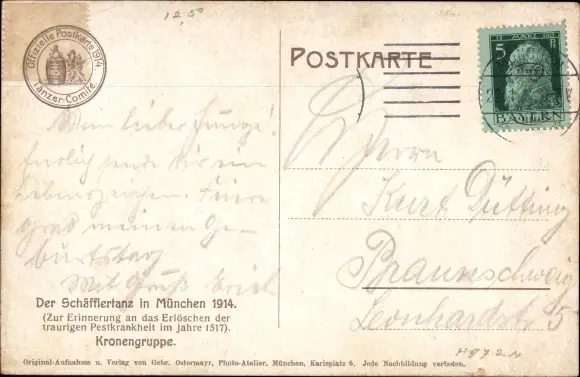 12,50
Offizielle Postkarte 1914.
Tänzer-Comité.
POSTKARTE
12. MÄRZ 1911
5 Pf
BAYERN
Mein lieber Junge!
Endlich sende dir ein
Lebenszeichen. Feiere
grad meinen Ge-
burtstag
Mit Gruß Erich
Herrn
Kurt Dütting
Braunschweig
Leonhardstr 5
Der Schäfflertanz in München 1914.
(Zur Erinnerung an das Erlöschen der
traurigen Pestkrankheit im Jahre 1517).
Kronengruppe.
Original-Aufnahme u. Verlag von Gebr. Ostermayr, Photo-Atelier, München, Karlsplatz 6. Jede Nachbildung verboten.